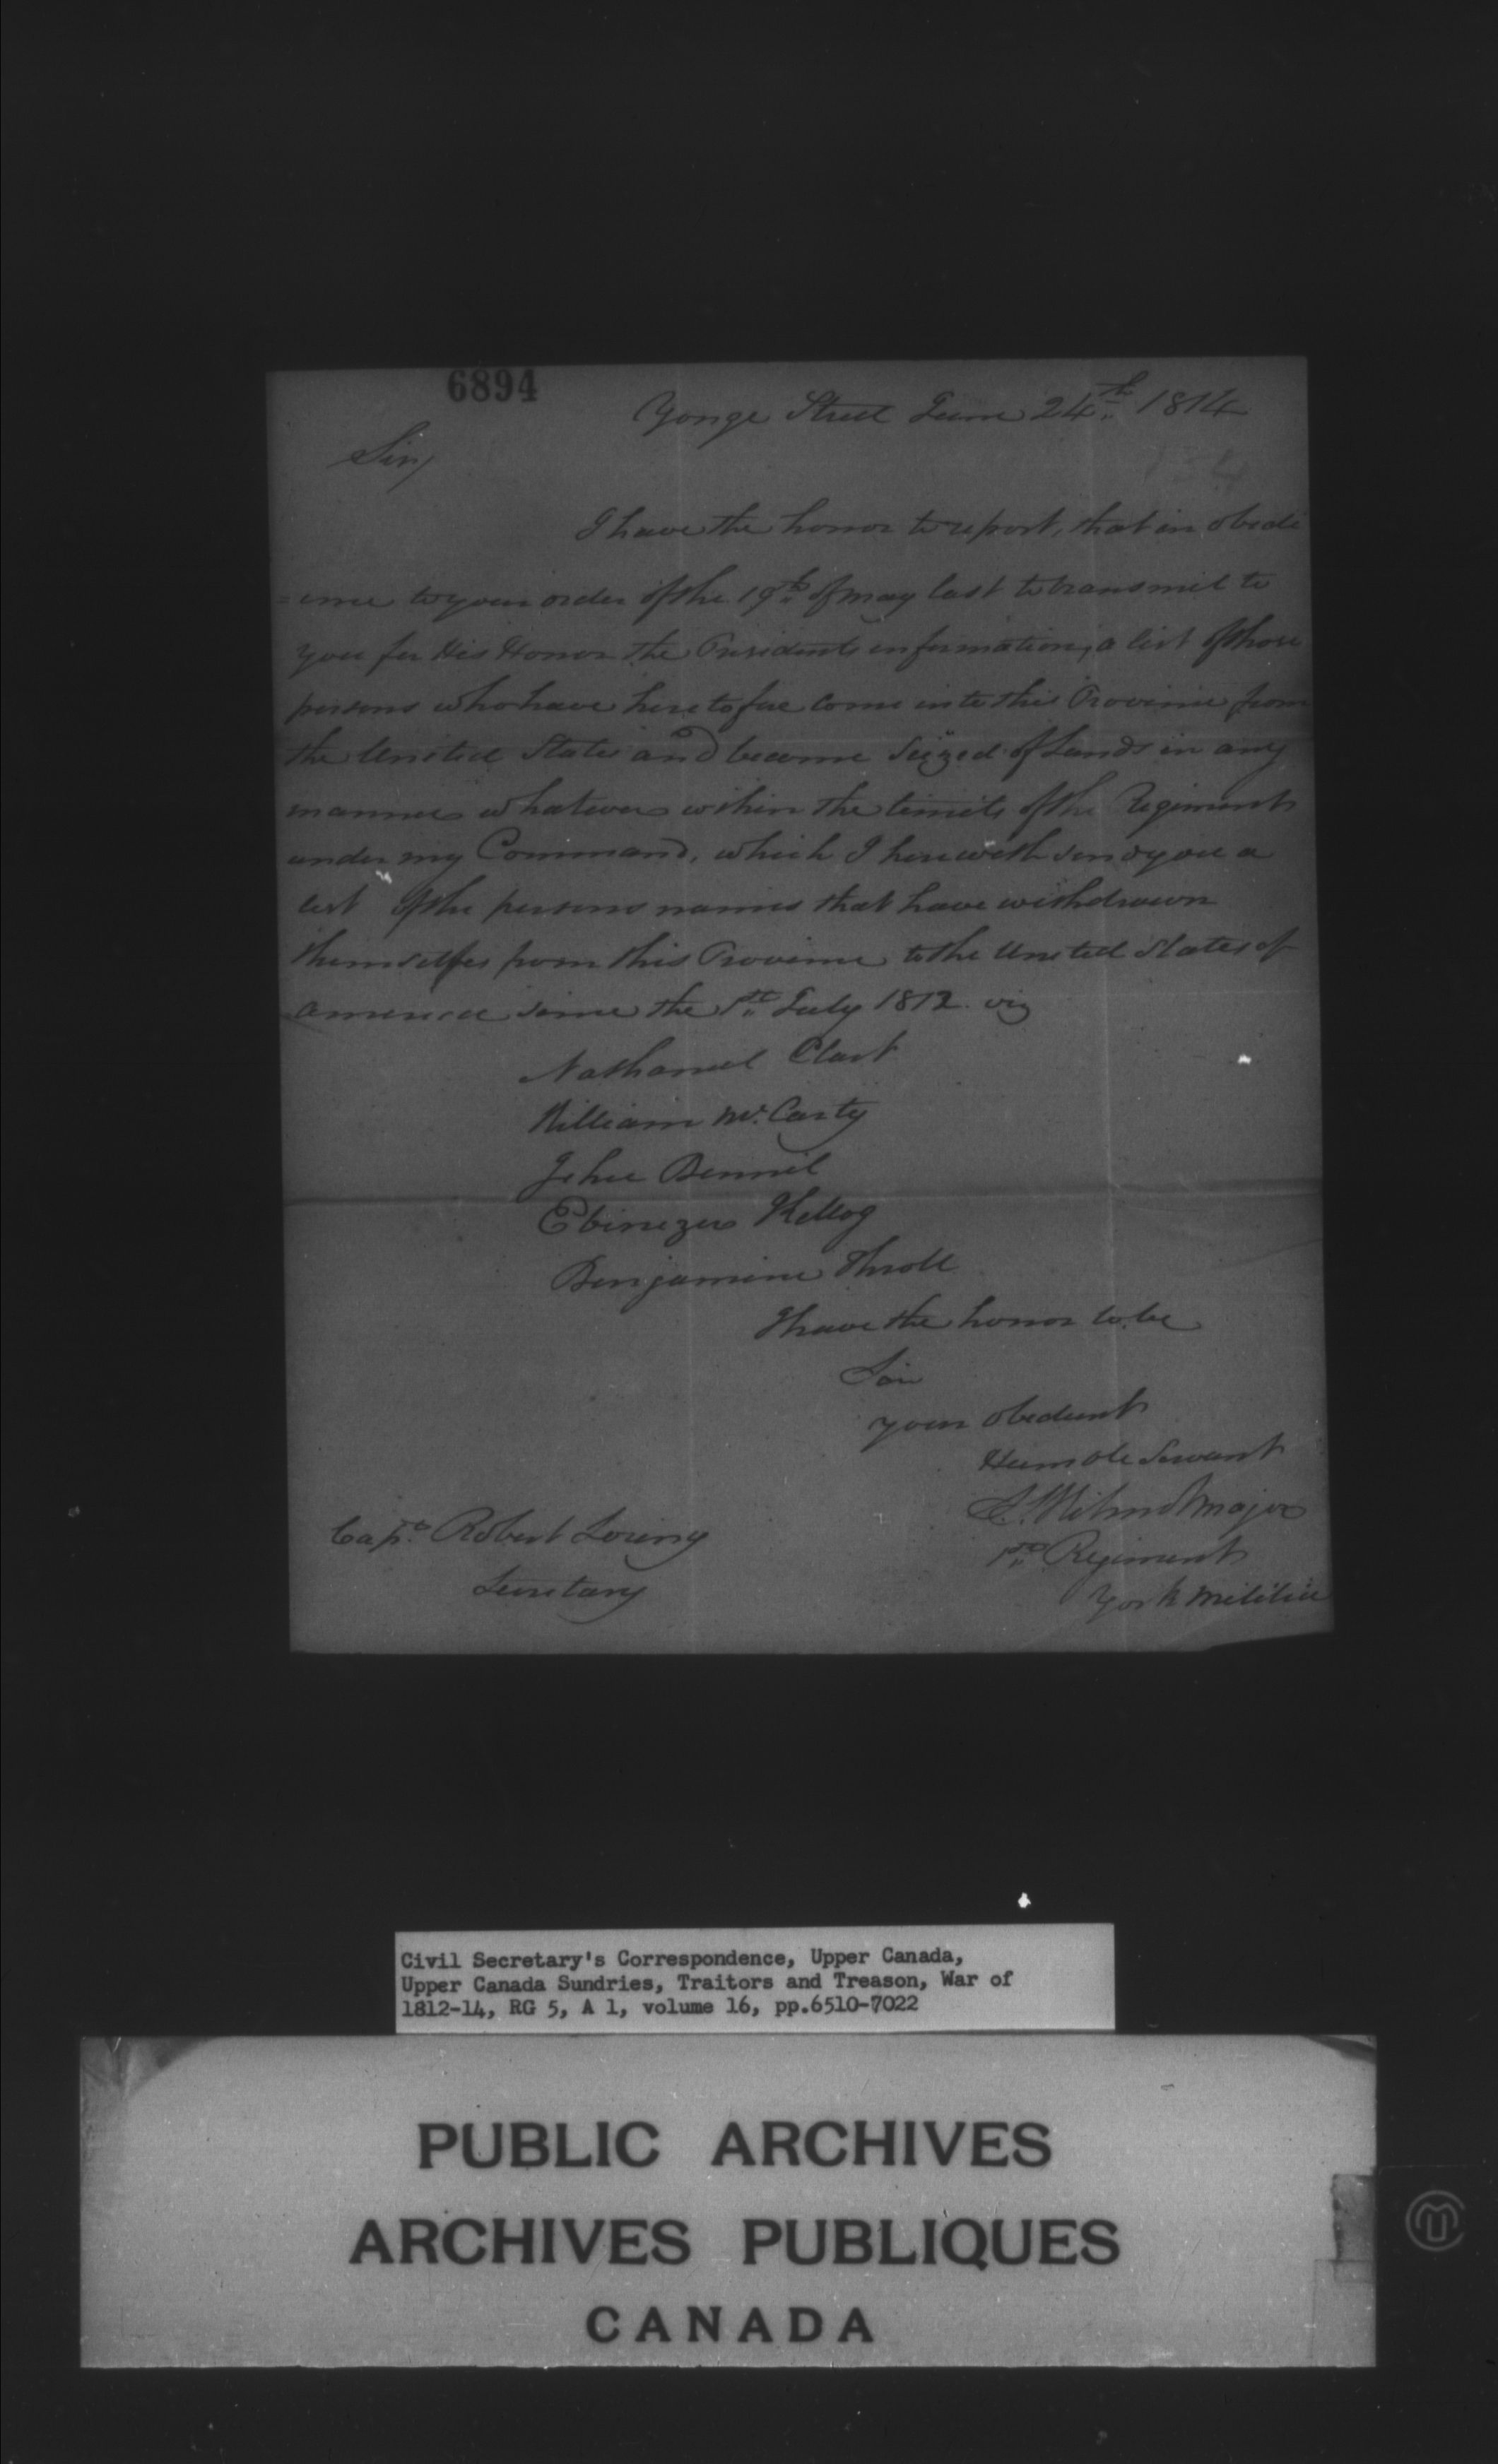 6894
Yonge Street June 24th 1814
Sir/
I have the honor to report, that in obedi
=ence to your order of the 19th of may last to transmit to
you for His Honor the Presidents information, a list of those
persons who have heretofore come into this Province from
the United States and became seized of Lands in any
manner whatever within the limits of the Regiment
under my Command, which I herewith send you a
list of the persons names that have withdrawn
themselfes from this Province to the United States of
america since the 1st July 1812. viz
Nathaniel Clark
William Mc.Carty
Jehu Bennit
Ebinezer Kellog
Benjamine Throll
I have the honor to be
Sir
your obedient
Humble Servant
S. Wilmot Major
1st Regiment
York Militia
Capt. Robert Loring
Secretary
Civil Secretary's Correspondence, Upper Canada,
Upper Canada Sundries, Traitors and Treason, War of
1812-14, RG 5, A 1, volume 16, pp.6510-7022
PUBLIC ARCHIVES
ARCHIVES PUBLIQUES
CANADA